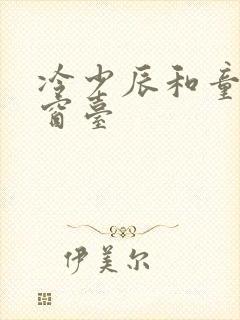 冷少辰和童
窗臺
伊美尔